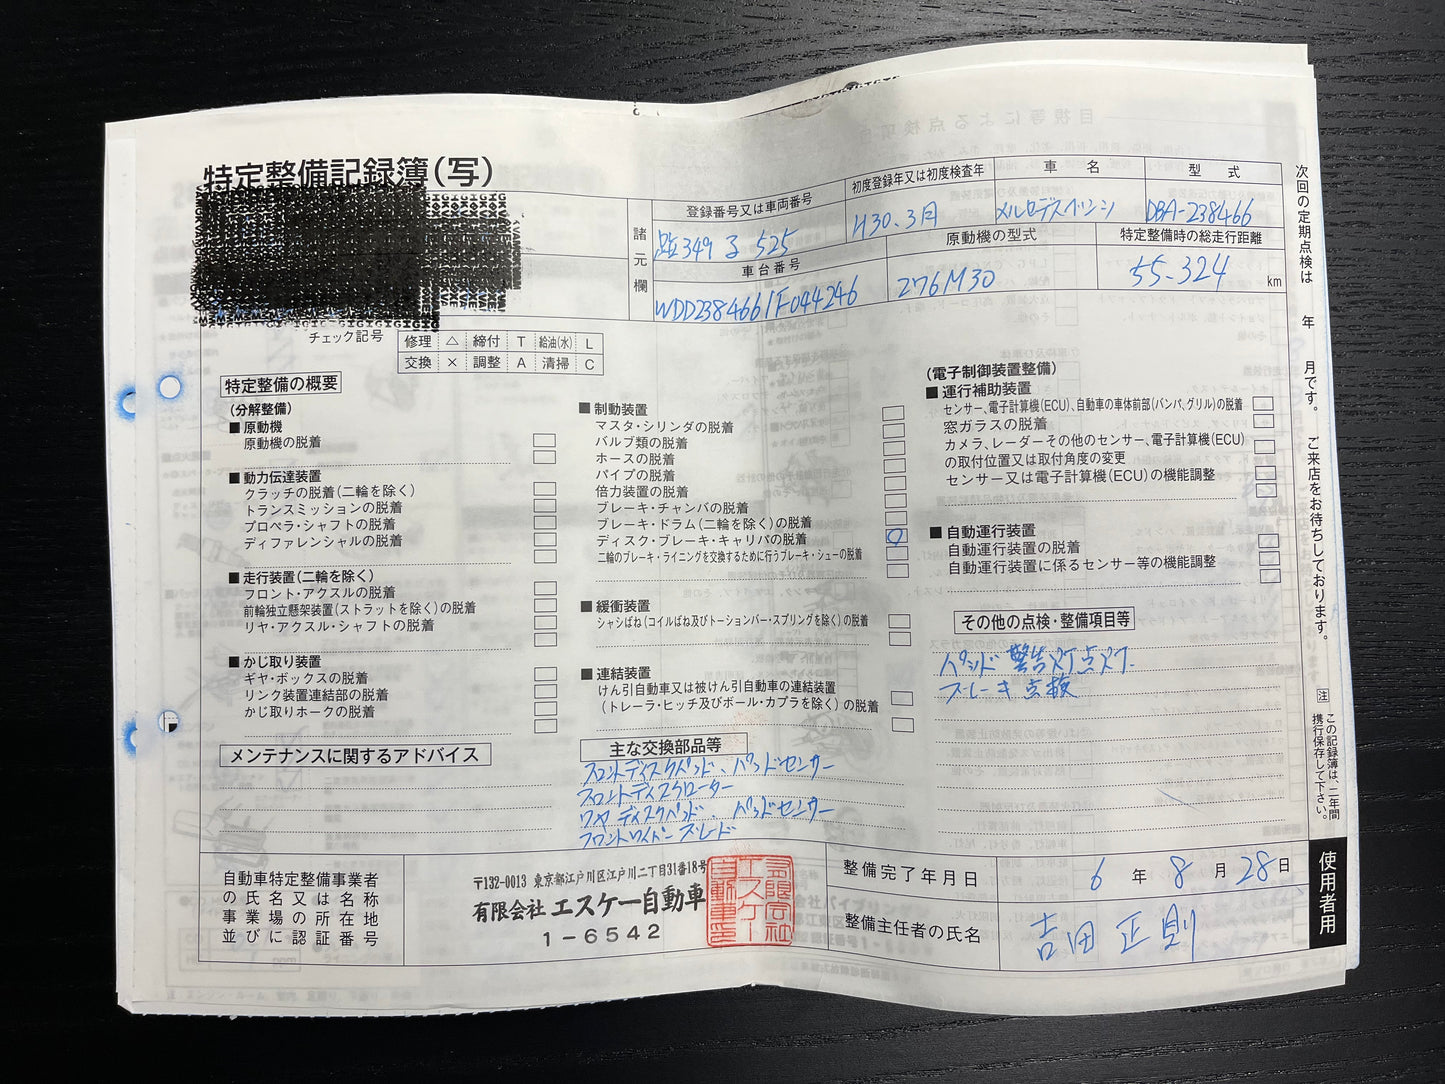 特定整備記録簿(写)
諸元欄
登録番号又は車両番号
349 525
初度登録年又は初度検査年
H30.3月
車名
メルセデスベンツ
型式
DBA-238466
車台番号
WDD2384661F044246
原動機の型式
276M30
特定整備時の総走行距離
55-324 km
チェック記号
修理 △ 締付 T 給油(水) L
交換 × 調整 A 清掃 C
特定整備の概要
(分解整備)
■ 原動機
原動機の脱着
■ 動力伝達装置
クラッチの脱着(二輪を除く)
トランスミッションの脱着
プロペラ・シャフトの脱着
ディファレンシャルの脱着
■ 走行装置(二輪を除く)
フロント・アクスルの脱着
前輪独立懸架装置(ストラットを除く)の脱着
リヤ・アクスル・シャフトの脱着
■ かじ取り装置
ギヤ・ボックスの脱着
リンク装置連結部の脱着
かじ取りホークの脱着
■ 制動装置
マスタ・シリンダの脱着
バルブ類の脱着
ホースの脱着
パイプの脱着
倍力装置の脱着
ブレーキ・チャンバの脱着
ブレーキ・ドラム(二輪を除く)の脱着
ディスク・ブレーキ・キャリパの脱着
二輪のブレーキ・ライニングを交換するために行うブレーキ・シューの脱着
■ 緩衝装置
シャシばね(コイルばね及びトーションバー・スプリングを除く)の脱着
■ 連結装置
けん引自動車又は被けん引自動車の連結装置
(トレーラ・ヒッチ及びボール・カプラを除く)の脱着
(電子制御装置整備)
■ 運行補助装置
センサー、電子計算機(ECU)、自動車の車体前部(バンパ、グリル)の脱着
窓ガラスの脱着
カメラ、レーダーその他のセンサー、電子計算機(ECU)
の取付位置又は取付角度の変更
センサー又は電子計算機(ECU)の機能調整
■ 自動運行装置
自動運行装置の脱着
自動運行装置に係るセンサー等の機能調整
その他の点検・整備項目等
パッド警告灯点灯.
ブレーキ点検
メンテナンスに関するアドバイス
主な交換部品等
フロントディスクパッド、パッドセンサー
フロントディスクローター
リヤディスクパッド、パッドセンサー
フロントワイパーブレード
自動車特定整備事業者
の氏名又は名称
事業場の所在地
並びに認証番号
〒132-0013 東京都江戸川区江戸川二丁目31番18号
有限会社 エスケー自動車
1-6542
有限会社エスケー自動車
整備完了年月日
6 年 8 月 28 日
整備主任者の氏名
吉田 正則
次回の定期点検は 年 月です。 ご来店をお待ちしております。
注 この記録簿は、二年間
携行保存して下さい。
使用者用